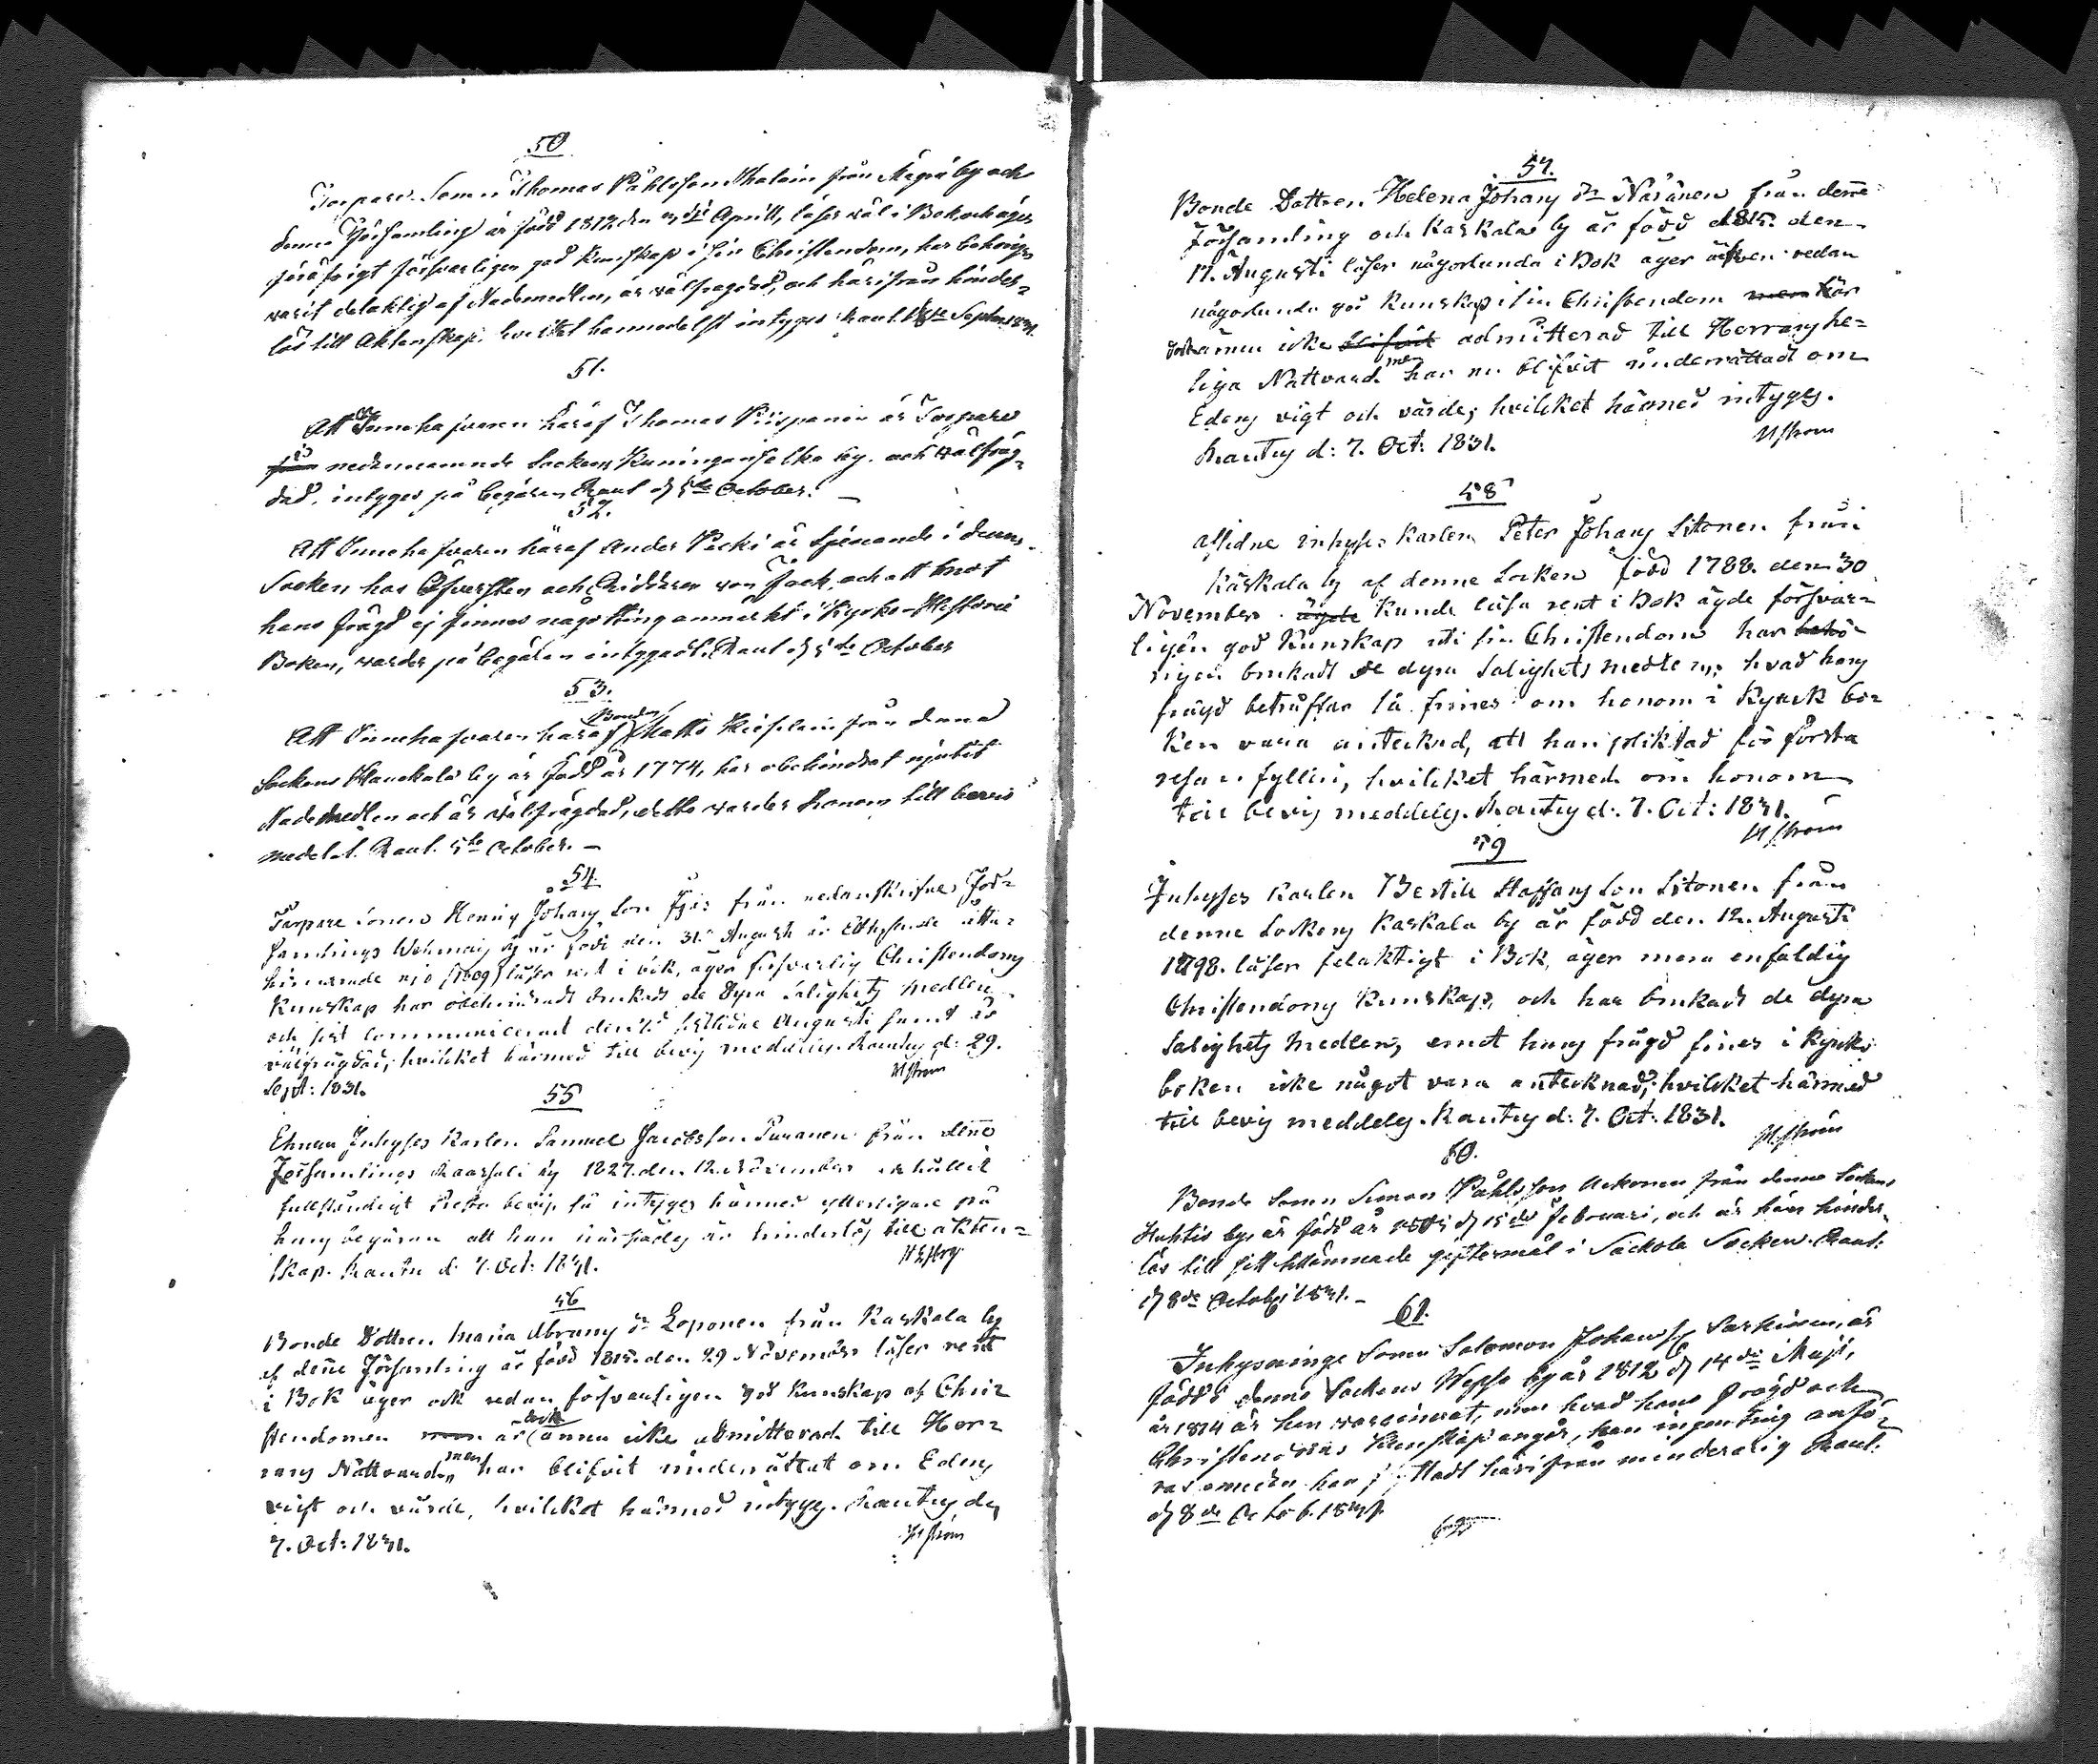 50
Torpare Sonen Thomas Påhlsson Thalain från Mägrä by och
denne Församling är född 1812 den 3die Aprill, läser väl i Bok, och äger
försvarligen god Kunskap i sin Christendom, har behörigen
varit delaktig af Nademedlen, är välfrägdad, och härifrån hinder-
lös till Äktenskap; hvilket härmedelst intyges Raut. Septbr 1831.
51.
Att Innehafvaren häraf Thomas Piispanen är Torpare
i nedannämnde Sockens Kuninganselkä by, och välfräg-
dad, intyges på begäran Raut d 5te October.
52.
Att Innehafvaren häraf Ander Pecki är tjenande i denna
Socken hos Öfversten och Riddaren von Fock, och att emot
hans frägd ej finnes någotting anmärkt i Kyrko-Historie
Boken, varder på begäran intygadt. Raut d 5te October
53.
Att Innehafvaren häraf Bonden Matts från denna
Sockens Haukkala by är född år 1774, har obehindrat njutit
Nademedlen och är välfrägdad, detta varder honom till bevis
meddelat. Raut. 5te October. —
54.
Torpare sonen Henric Johans Son från nedanskrifne För-
samlings by är född den 31 Augusti år Ettusende åtta-
hundrade nio (1809) läser rent i bok, äger försvarlig Christendoms
Kunskap har obehindradt brukadt de Dyra Salighets Medlen
och sist Communicerat den sistlidne Augusti samt är
välfrägdad; hvilket härmed till bevis meddelas. Rautus d: 29.
Sept: 1831.
55
Ehuru Inhyses Karlen Samuel Jacobsson Puranen från denne
Församlings by 1827. den 12. November erhållit
fullständigt Presta bevis, så intyges härmed ytterligare på
hans begäran att han härstädes är hinderlös till äkten-
skap. Rautus d. 7. Oct: 1831.
56
Bonde Dottren Maria Abrams dr Loponen från Kaskala by
af denne Församling är född 1815. den 29 November läser rent
i Bok äger ock redan försvarligen god Kunskap af Chri-
stendomen men är dock ännu icke admitterad till Her-
rans Nattvard, men har blifvit underrättat om Edens
vigt och värde, hvilket härmed intyges. Rautus den
7. Oct: 1831.
57.
Bonde Dottren Helena Johans dr Näränen från denne
Församling och Kaskala by är född 1815. den
17. Augusti läser någorlunda i Bok äger äfven redan
någorlunda god Kunskap i sin Christendom men är
dock ännu icke blifvit admitterad till Herrans he-
liga Nattvard men har nu blifvit underrättad om
Edens vigt och värde; hvilket härmed intyges.
Rautus d: 7. Oct: 1831.
58
Aflidne inhyses Karlen Peter Johans Sitonen från
Käskala by af denne Socken född 1788. den 30
November ägde Kunde läsa rent i Bok ägde försvar-
ligen god Kunskap uti sin Christendom har behö-
rigen brukadt de dyra Salighets medlen; hvad hans
frägd beträffar så finnes om honom i Kyrck bo-
ken vara antecknad, att han pliktad för första
resan fylleri, hvilcket härmed om honom
till bevis meddeles. Rautus d: 7. Oct: 1831.
59
Inhyses Karlen Bertil Staffans Son Sitonen från
denne Sockens Kaskala by är född den 12. Augusti
1798. läser felaktigt i Bok, äger mera enfaldig
Christendoms Kunskap, och har brukadt de dyra
Salighets Medlen, emot hans frägd fines i Kyrko
boken icke något vara antecknad; hvilcket härmed
till bevis meddeles. Rautus d: 7. Oct: 1831.
60.
Bonde Sonen Simon Påhlsson Ackonen från denne Sockens
Huhtis by, är född år d 15de Februari, och är härs hinder-
lös till sitt tillämnade giftermål i Säckola Socken. Raut:
d 8de October 1831. —
61.
Inhysninge Sonen Salomon Johansson Sarkinen, är
född i denne Sockens Wepsa by år 1812 d 14de Maji,
år 1814 är han vaccinerat, men hvad hans frägd och
Christendoms Kunskap angår, kan ingenting anfö-
ras emedan han flyttadt härifrån minderårig. Raut:
d 8de Octob. 1831.
62